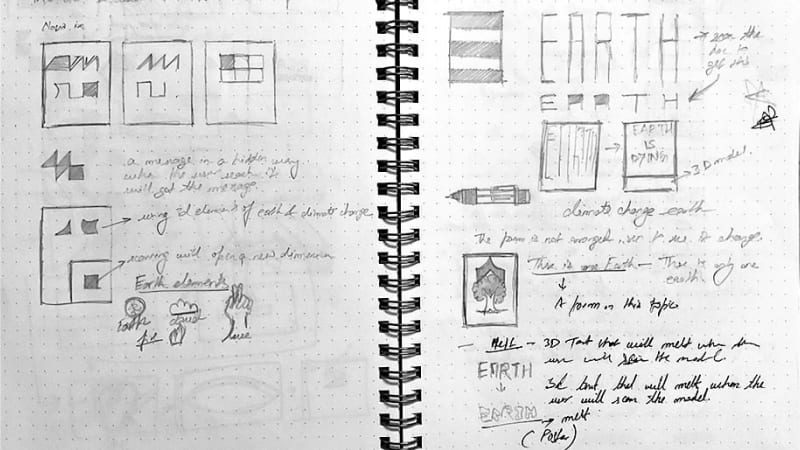 a message in a hidden way.
when the user scan it
will get the message.
using 3d elements of earth & climate change
scanning will open a new dimension
Earth elements
Earth
cloud
tree
EARTH
→ scan the
doc to
get this
E A R T H
E
EARTH
IS
DYING
3D model.
climate change earth
The poem is not arranged, user to see it change.
This is one Earth — There is only one
earth.
A poem on this topic
— Melt — 3D Text that will melt when the
user will scan the model.
EARTH
3d text that will melt when the
user will scan the model.
EARTH
→ melt
(Poster)